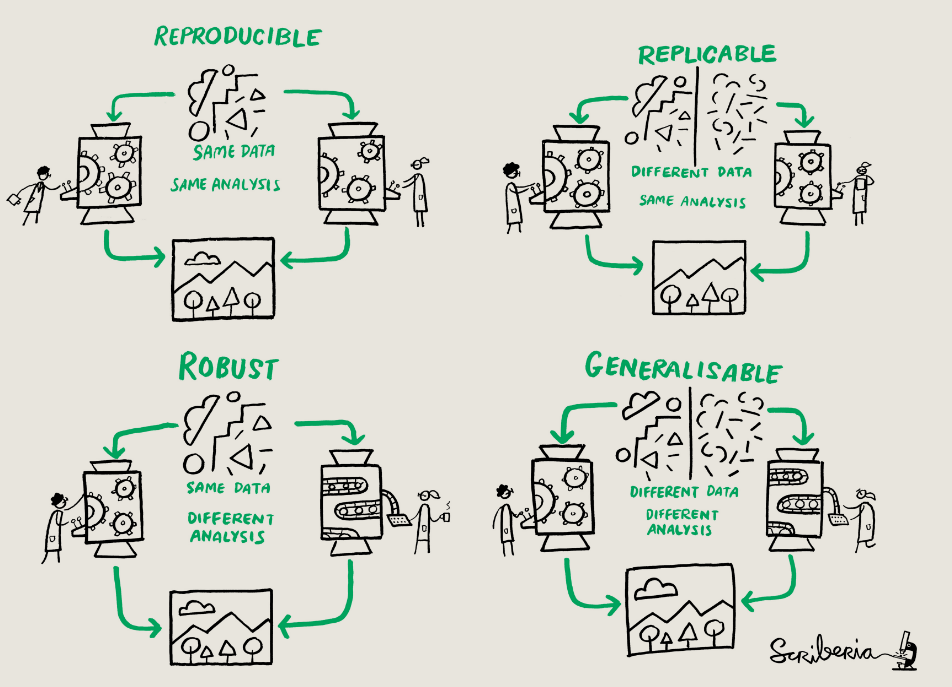 REPRODUCIBLE
SAME DATA
SAME ANALYSIS
REPLICABLE
DIFFERENT DATA
SAME ANALYSIS
ROBUST
SAME DATA
DIFFERENT
ANALYSIS
GENERALISABLE
DIFFERENT DATA
DIFFERENT
ANALYSIS
Scriberia